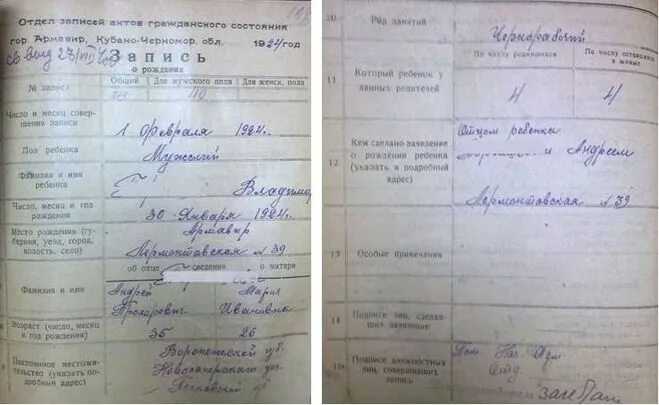 Отдел записей актов гражданского состояния
гор. Армавир, Кубано-Черномор. обл. 1924 год
Запись
о рождении
№ записи
Общий
Для мужского пола
Для женск. пола
110
Число и месяц совершения записи
1 Февраля 1924г.
Пол ребенка
Мужской
Фамилия и имя ребенка
Владимир
Число, месяц и год рождения
30 Января 1924г.
Место рождения (губерния, уезд, город, волость, село)
Армавир
Лермонтовская № 39
Сведения
об отце
о матери
Фамилия и имя
Андрей
Прохорович
Мария
Ивановна
Возраст (число, месяц и год рождения)
35
26
Постоянное местожительство (указать подробный адрес)
Воронежской губ.
Новохоперского уез.
10
Род занятий
Чернорабочий
11
Который ребенок у данных родителей
По числу родившихся
По числу оставшихся в живых
4
4
12
Кем сделано заявление о рождении ребенка (указать и подробный адрес)
Отцом ребенка
и Андреем
Лермонтовская № 39
13
Особые примечания
14
Подписи лиц, сделавших заявление
15
Подписи должностных лиц, совершивших запись